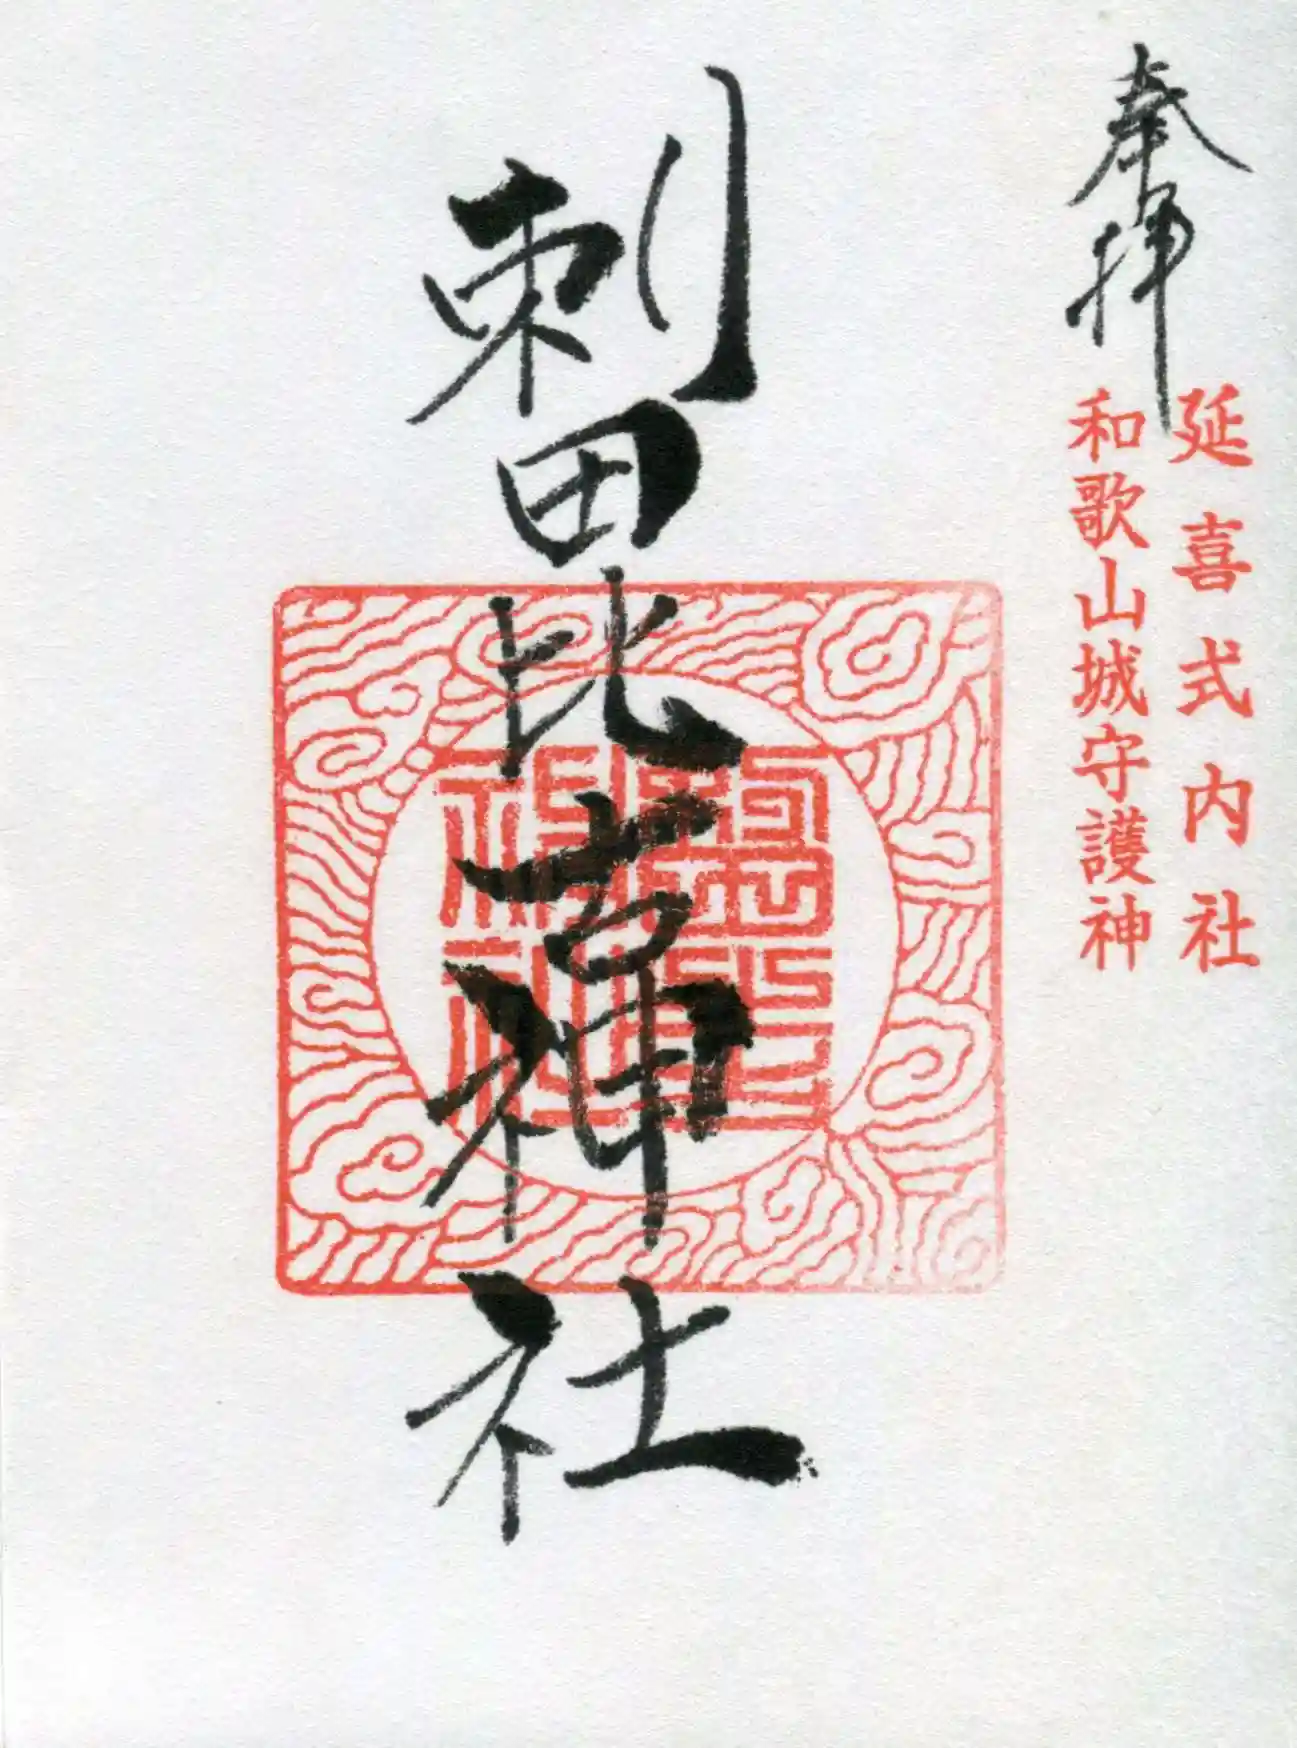 奉拝
延喜式内社
和歌山城守護神
刺田比古神社